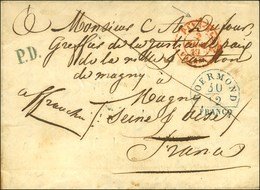 Monsieur C A Dufour,
Greffier de la Justice de paix
de la ville & canton
de magny à
P.D.
affranchi
Magny
Seine & Oise
France
ROERMOND
30
12
FRANCO